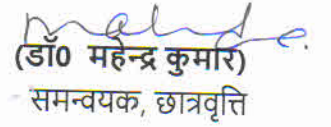 (डॉ0 महेन्द्र कुमार)
समन्वयक, छात्रवृत्ति